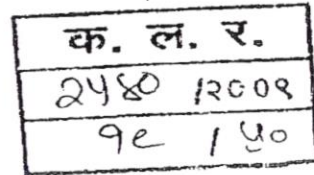 क. ल. र.
२५४० /२००९
१९ / ५०